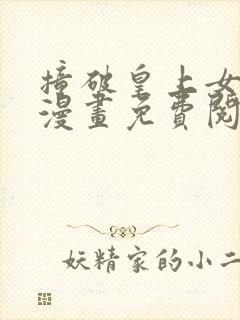 撞破皇上女
漫畫免費閱
妖精家的小二